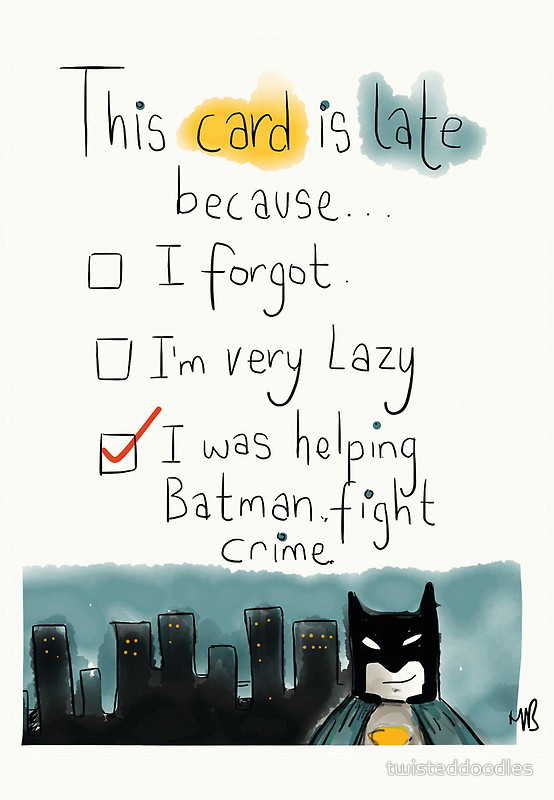 This card is late
because...
I forgot.
I'm very Lazy
I was helping
Batman fight
crime.
twisteddoodles